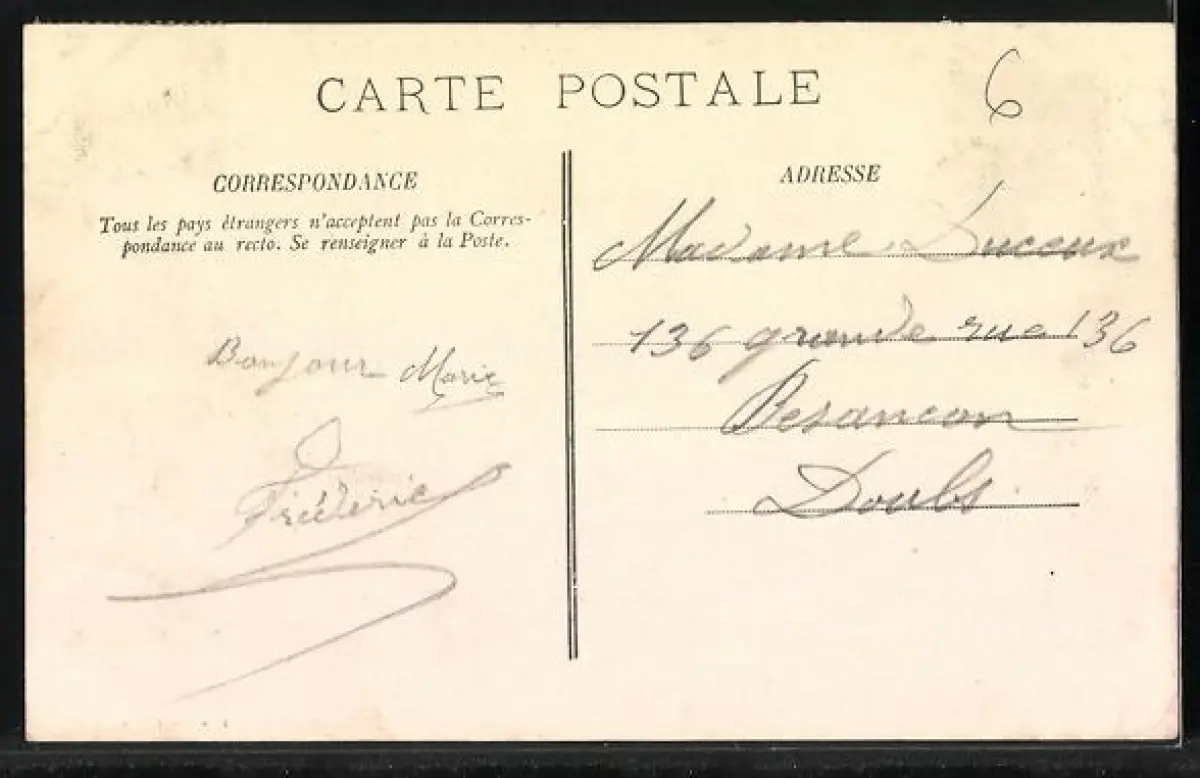 CARTE POSTALE
6
CORRESPONDANCE
Tous les pays étrangers n'acceptent pas la Corres-
pondance au recto. Se renseigner à la Poste.
Bonjour Marie
Fréderic
ADRESSE
Madame Duceux
136 grande rue 136
Besancon
Doubs